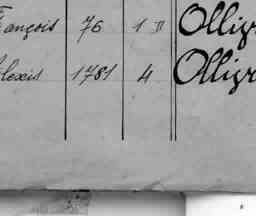 François 76 1 D Olligr
Alexis 1781 4 Olligr